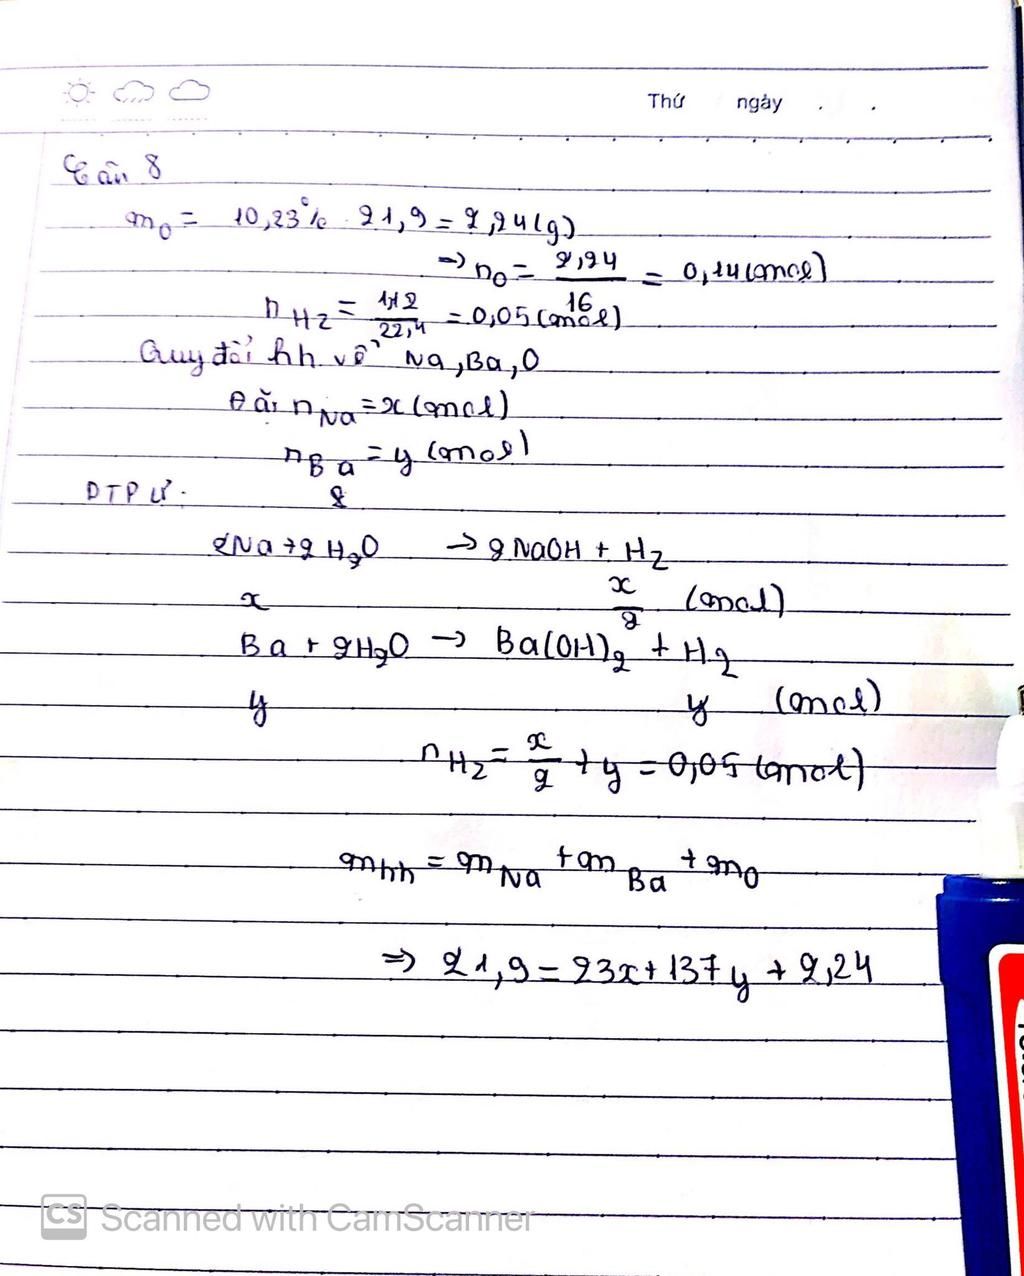 Thứ ngày . .
Câu 8
mO = 10,23% . 21,9 = 2,24 (g)
=> nO = 2,24/16 = 0,14 (mol)
nH2 = 1,12/22,4 = 0,05 (mol)
Quy đổi hh về Na, Ba, O
Đặt nNa = x (mol)
nBa = y (mol)
PTPƯ:
2Na + 2H2O -> 2NaOH + H2
x x/2 (mol)
Ba + 2H2O -> Ba(OH)2 + H2
y y (mol)
nH2 = x/2 + y = 0,05 (mol)
mhh = mNa + mBa + mO
=> 21,9 = 23x + 137y + 2,24
CS Scanned with CamScanner